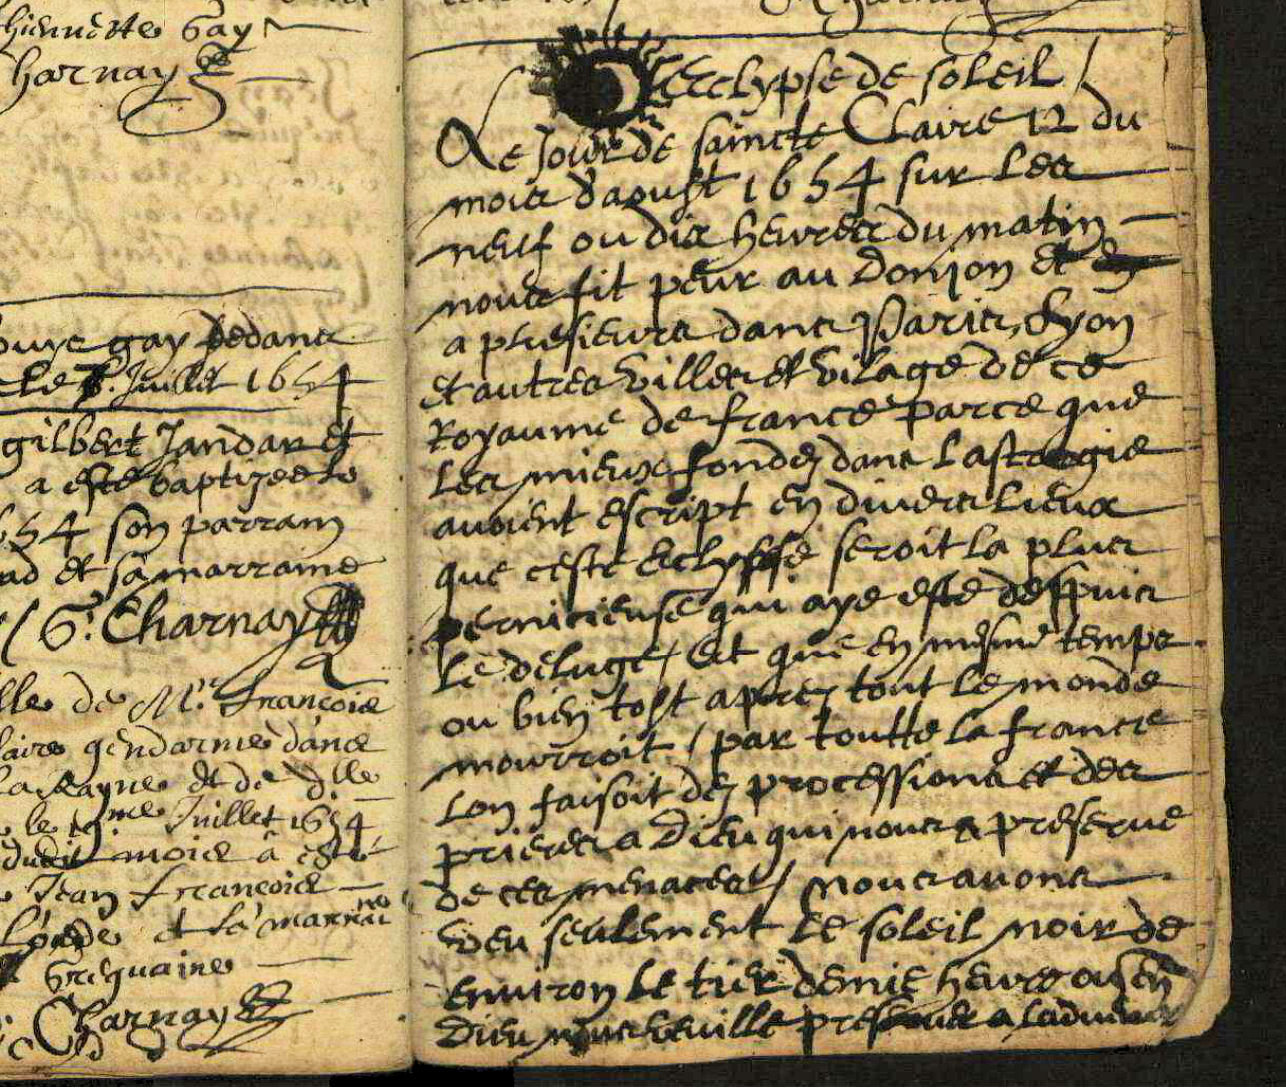 hienette Gay
Charnay
gay dedans
le 7. Juillet 1654
gilbert Jandar et
a esté baptizee le
1654 son parrain
et sa marraine
G. Charnay
fille de Mr. François
gendarme dans
la Rayne et de dlle
le 19me Juillet 1654
dudit mois a esté
Jean François
et la marraine
Charnay
L'Ecclypse de soleil /
Le Jour de saincte Claire 12 du
mois d'aoust 1654 sur les
neuf ou dix heures du matin
nous fit peur au Donjon et
a plusieurs dans Paris, Lyon
et autres villes et vilage de ce
Royaume de france parce que
les mieux fondez dans lastrogie
avoient escript en divers lieux
que ceste Eclypse seroit la plus
pernicieuse qui aye esté despuis
le deluge / Et que en mesme temps
ou bien tost aprez tout le monde
mourroit / par toutte la france
lon faisoit dez processions et des
prieres a Dieu qui nous a preservé
de ces menaces / Nous avons
veu seulement le soleil noir de
environ le tier demie heure ou en
Dieu nous veuille preserver a ladvenir